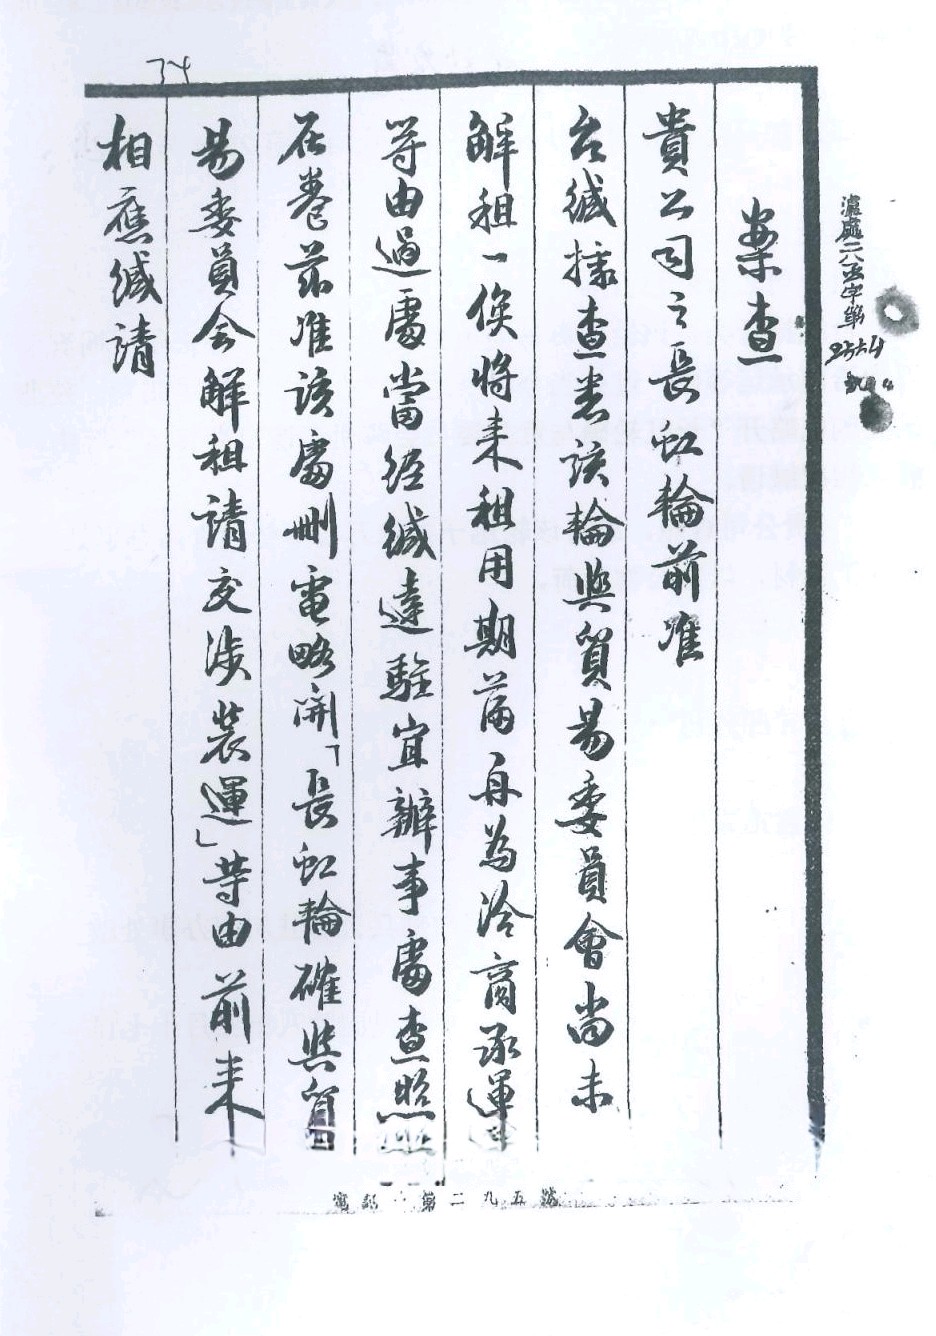 34
滬處二八法字第
2554
號
案查
貴公司之長虹輪前准
台緘據查悉該輪與貿易委員會尚未
解租一俟將來租用期滿再為洽商承運
等由過處當經緘達駐宜辦事處查照
在卷茲准該處刪電略開「長虹輪確與貿
易委員会解租請交涉裝運」等由前来
相應緘請
第二九五號